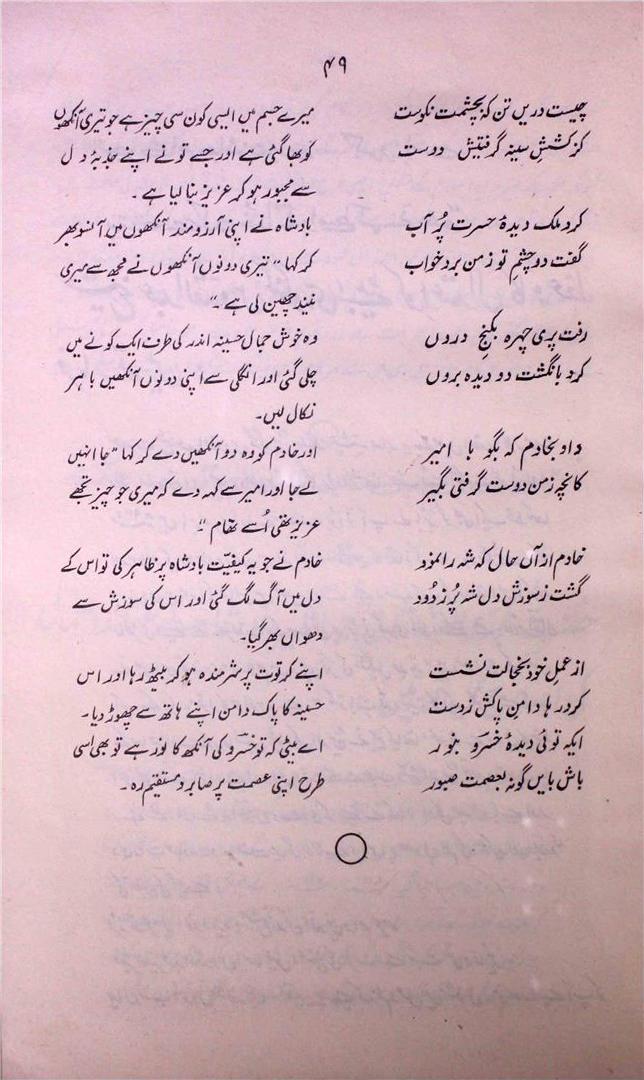 ۴۹
چیست دریں تن کہ بچشمت نکوست
کز کششِ سینہ گرفتیش دوست
میرے جسم میں ایسی کون سی چیز ہے جو تیری آنکھوں
کو بھا گئی ہے اور جسے تو نے اپنے جذبۂ دل
سے مجبور ہو کر عزیز بنا لیا ہے ۔
کرد ملک دیدۂ حسرت پُر آب
گفت دو چشمِ تو زمن برد خواب
بادشاہ نے اپنی آرزومند آنکھوں میں آنسو بھر
کر کہا " تیری دونوں آنکھوں نے مجھ سے میری
نیند چھین لی ہے ۔"
رفت پری چہرہ بکنجِ دروں
کرد بانگشت دو دیدہ بروں
وہ خوش جمال حسینہ اندر کی طرف ایک کونے میں
چلی گئی اور انگلی سے اپنی دونوں آنکھیں باہر
نکال لیں ۔
داد بخادم کہ بگو با امیر
کانچہ زمن دوست گرفتی بگیر
اور خادم کو وہ دو آنکھیں دے کر کہا " جا انہیں
لے جا اور امیر سے کہہ دے کہ میری جو چیز تجھے
عزیز تھی اُسے تھام ۔"
خادم از آں حال کہ شہ را نمود
گشت ز سوزش دل شہ پُر ز دُود
خادم نے جو یہ کیفیّت بادشاہ پر ظاہر کی تو اس کے
دل میں آگ لگ گئی اور اس کی سوزش سے
دھواں بھر گیا ۔
از عملِ خود بخجالت نشست
کرد رہا دامنِ پاکش ز دست
اپنے کرتوت پر شرمندہ ہو کر بیٹھ رہا اور اس
حسینہ کا پاک دامن اپنے ہاتھ سے چھوڑ دیا ۔
ایکہ توئی دیدۂ خسرو بنور
باش بایں گونہ بعصمت صبور
اے بیٹی کہ تو خسرو کی آنکھ کا نور ہے تو بھی اسی
طرح اپنی عصمت پر صابر و مستقیم رہ ۔